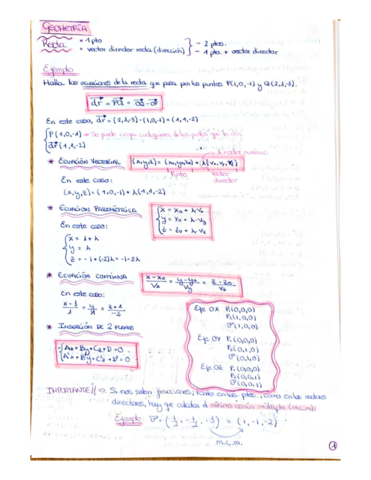 GEOMETRÍA
Recta = 1 pto
= vector director recta (dirección)
- 2 ptos.
- 1 pto. + vector director
Ejemplo
Halla las ecuaciones de la recta que pasa por los puntos P(1,0,-1) y Q(2,1,-3).
dr = PQ = OQ - OP
En este caso, dr = (2,1,-3) - (1,0,-1) = (1,1,-2)
P(1,0,-1) → Se puede coger cualquiera de los puntos que te dan
dr (1,1,-2)
* ECUACIÓN VECTORIAL (x,y,z) = (x0,y0,z0) + λ(vx,vy,vz)
Punto vector director
En este caso:
(x,y,z) = (1,0,-1) + λ(1,1,-2)
* ECUACIÓN PARAMÉTRICA
x = x0 + λ·vx
y = y0 + λ·vy
z = z0 + λ·vz
En este caso:
x = 1 + λ
y = λ
z = -1 + (-2)λ = -1-2λ
* ECUACIÓN CONTINUA x-x0/vx = y-y0/vy = z-z0/vz
En este caso:
x-1/1 = y/1 = z+1/-2
* INSERCIÓN DE 2 PLANOS
Ax + By + Cz + D = 0
A'x + B'y + C'z + D' = 0
Eje OX P1(0,0,0)
P2(1,0,0)
v(1,0,0)
Eje OY P1(0,0,0)
P2(0,1,0)
v(0,1,0)
Eje OZ P1(0,0,0)
P2(0,0,1)
v(0,0,1)
IMPORTANTE!! => Si nos salen fracciones, tanto en los ptos., como en los vectores
directores, hay que calcular el mínimo común múltiplo (m.c.m):
Ejemplo: v = (1/2, -1/2, -1) = (1,-1,-2)
m.c.m.
1